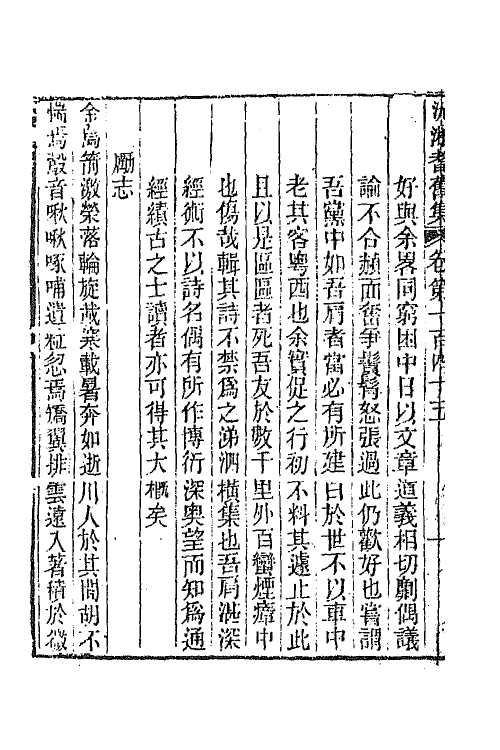 沅湘耆舊集 卷第一百四十五
好與余畧同窮困中日以文章道義相切劘偶議
論不合頳而奮爭鬢髯怒張過此仍歡好也嘗謂
吾黨中如吾肩者當必有所建白於世不以車中
老其客粵西也余實促之行初不料其遽止於此
且以是區區者死吾友於數千里外百蠻煙瘴中
也傷哉輯其詩不禁爲之涕泗橫集也吾肩湛深
經術不以詩名偶有所作博衍深奥望而知爲通
經績古之士讀者亦可得其大槪矣
勵志
金烏箭激榮落輪旋裁寀載暑奔如逝川人於其間胡不
惴焉鷇音啾啾啄哺遺粒忽焉矯翼排雲遠入著積於微